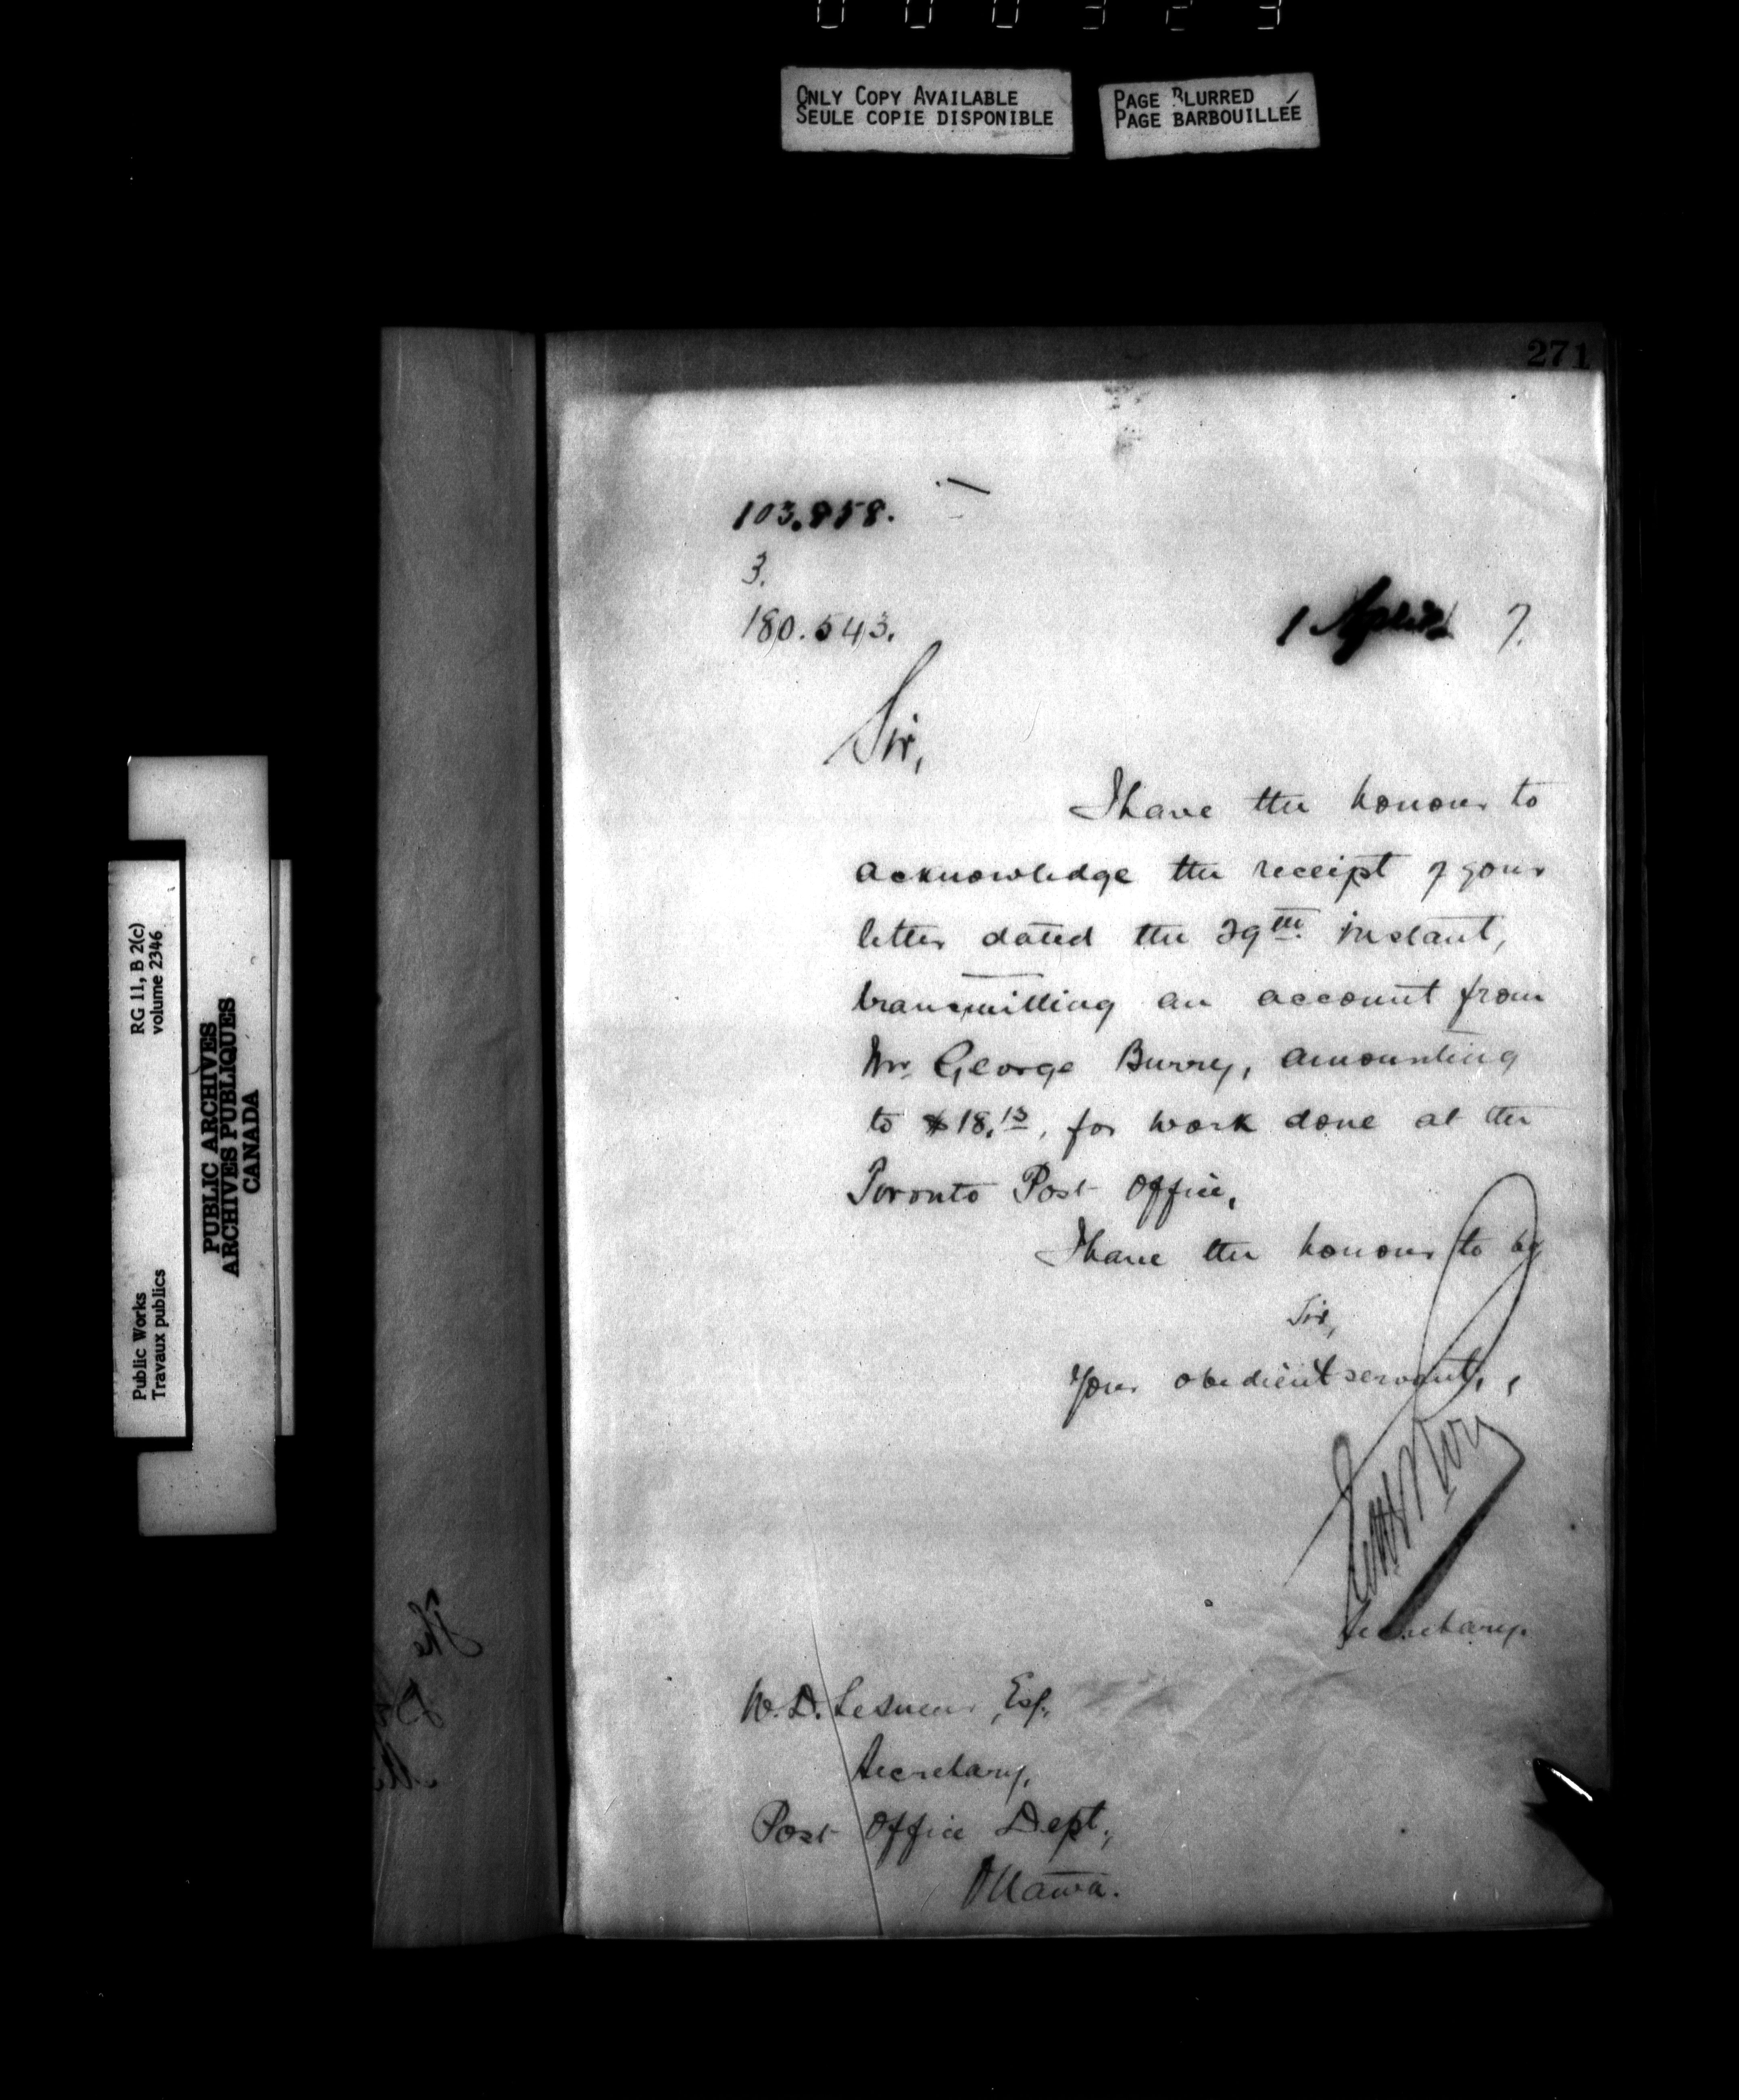 0 0 0 3 2 3
ONLY COPY AVAILABLE
SEULE COPIE DISPONIBLE
PAGE BLURRED
PAGE BARBOUILLÉE
271
103.958.
3.
180.543.
1 April 7.
Sir,
I have the honour to
acknowledge the receipt of your
letter dated the 29th instant,
transmitting an account from
Mr. George Burry, amounting
to $18.13, for work done at the
Toronto Post Office,
I have the honour to be
Sir,
Your obedient servant,
Secretary.
W. D. LeSueur, Esq.,
Secretary,
Post Office Dept.,
Ottawa.
RG 11, B 2(c)
volume 2346
Public Works
Travaux publics
PUBLIC ARCHIVES
ARCHIVES PUBLIQUES
CANADA
The